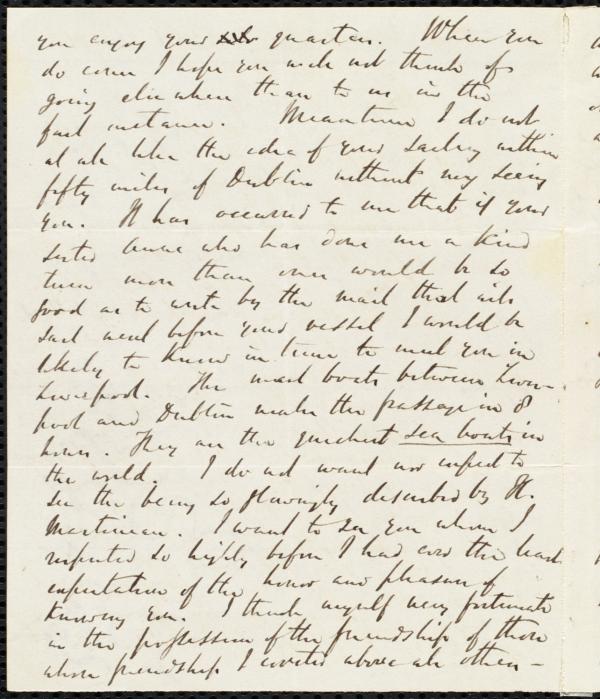 you enjoy your quarters. When you
do come I hope you will not think of
going elsewhere than to us in the
first instance. Meantime I do not
at all like the idea of your sailing within
fifty miles of Dublin without my seeing
you. It has occurred to me that if your
sister Anne who has done me a kind
turn more than once would be so
good as to write by the mail that will
sail next before your vessel I would be
likely to know in time to meet you in
Liverpool. The mail boats between Liver-
pool and Dublin make the passage in 8
hours. They are the quickest sea boats in
the world. I do not want nor expect to
see the being so glowingly described by H.
Martineau. I want to see you whom I
respected so highly before I had ever the least
expectation of the honor and pleasure of
knowing you. I think myself very fortunate
in the possession of the friendship of those
whose friendship I coveted above all others -